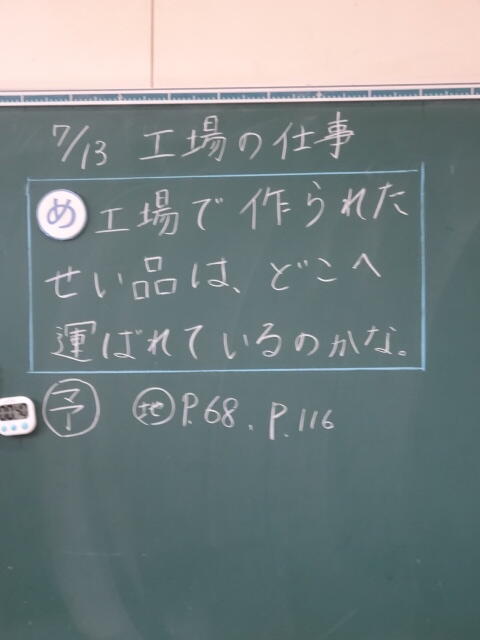 7/13 工場の仕事
め 工場で作られた
せい品は、どこへ
運ばれているのかな。
予 地 P.68、P.116